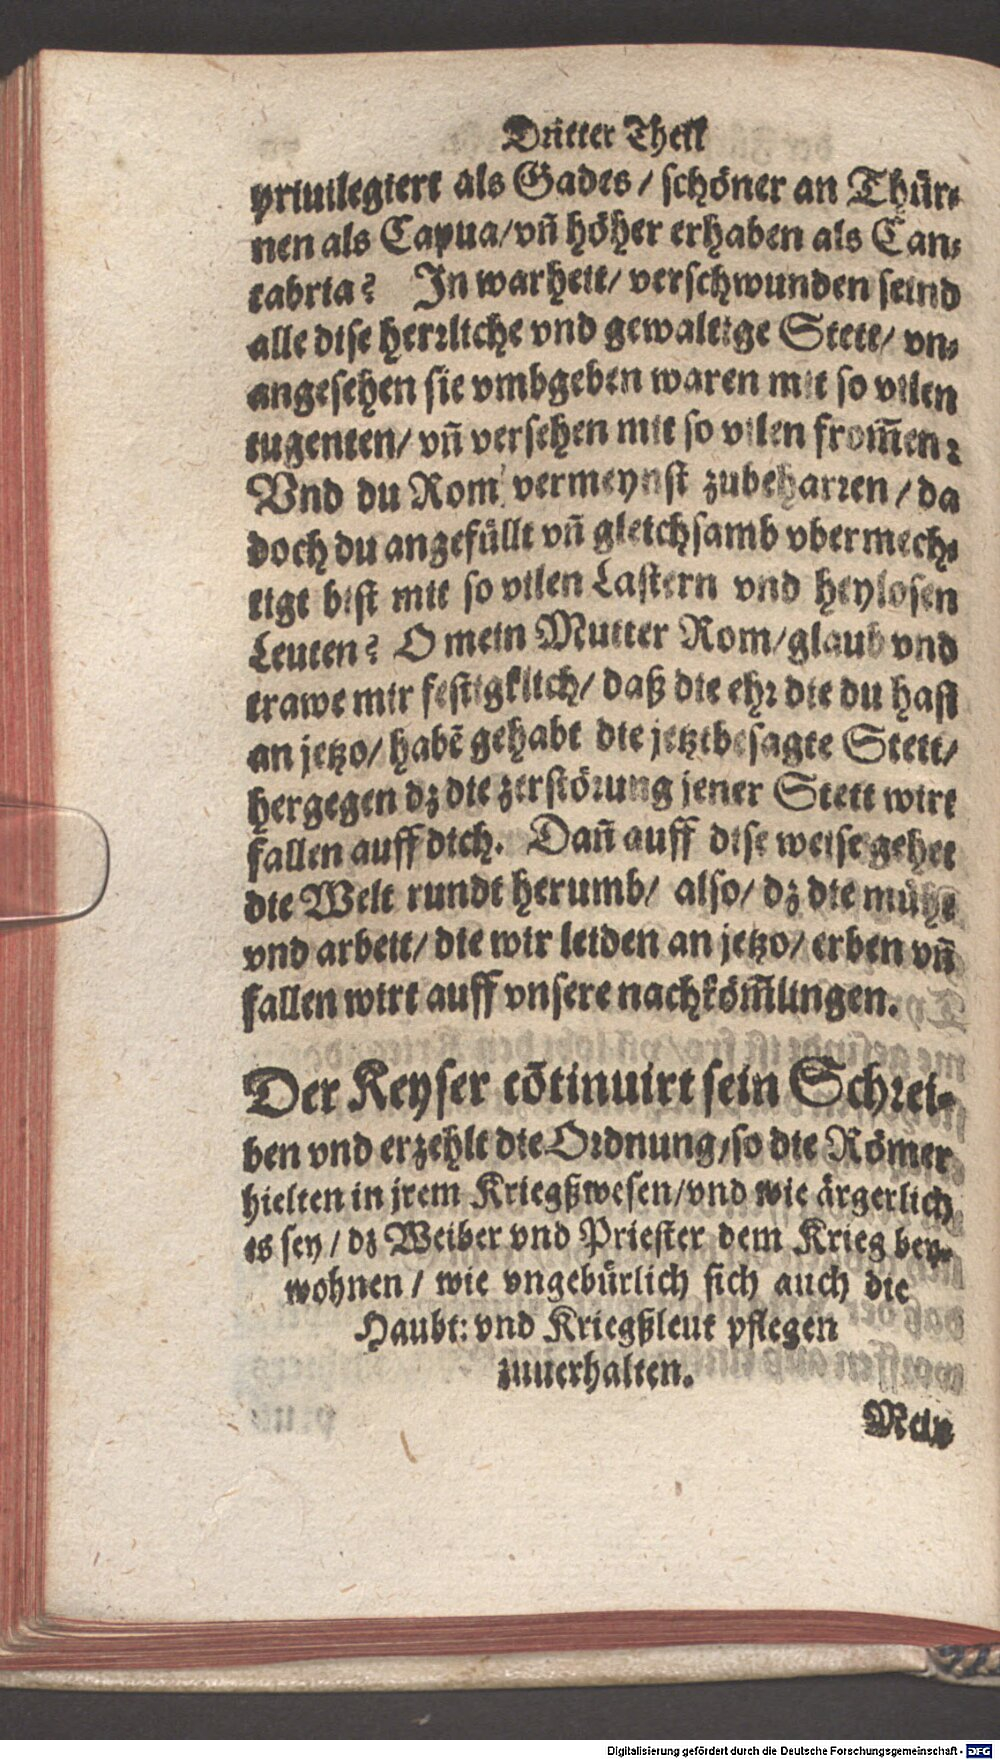 Dritter Theil
priuilegiert als Gades / schöner an Thür⸗
nen als Capua/vñ höher erhaben als Can⸗
tabria? In warheit/ verschwunden seind
alle dise herꝛliche vnd gewaltige Stett/ vn⸗
angesehen sie vmbgeben waren mit so vilen
tugenten/ vñ versehen mit so vilen from̃en:
Vnd du Rom vermeynst zubeharꝛen / da
doch du angefüllt vñ gleichsamb vbermech⸗
tigt bist mit so vilen Lastern vnd heylosen
Leuten? O mein Mutter Rom/glaub vnd
trawe mir festigklich/ daß die ehꝛ die du hast
an jetzo/ habē gehabt die jetztbesagte Stett/
hergegen dz die zerstöꝛung jener Stett wirt
fallen auff dich. Dañ auff dise weise gehet
die Welt rundt herumb/ also/ dz die mühe
vnd arbeit/ die wir leiden an jetzo/ erben vñ
fallen wirt auff vnsere nachköm̃lingen.
Der Keyser cōtinuirt sein Schꝛei⸗
ben vnd erzehlt die Oꝛdnung/so die Römer
hielten in jrem Kriegßwesen/vnd wie ärgerlich
es sey / dz Weiber vnd Priester dem Krieg bey⸗
wohnen / wie vngebürlich sich auch die
Haubt: vnd Kriegßleut pflegen
zuuerhalten.
Mein
Digitalisierung gefördert durch die Deutsche Forschungsgemeinschaft - DFG